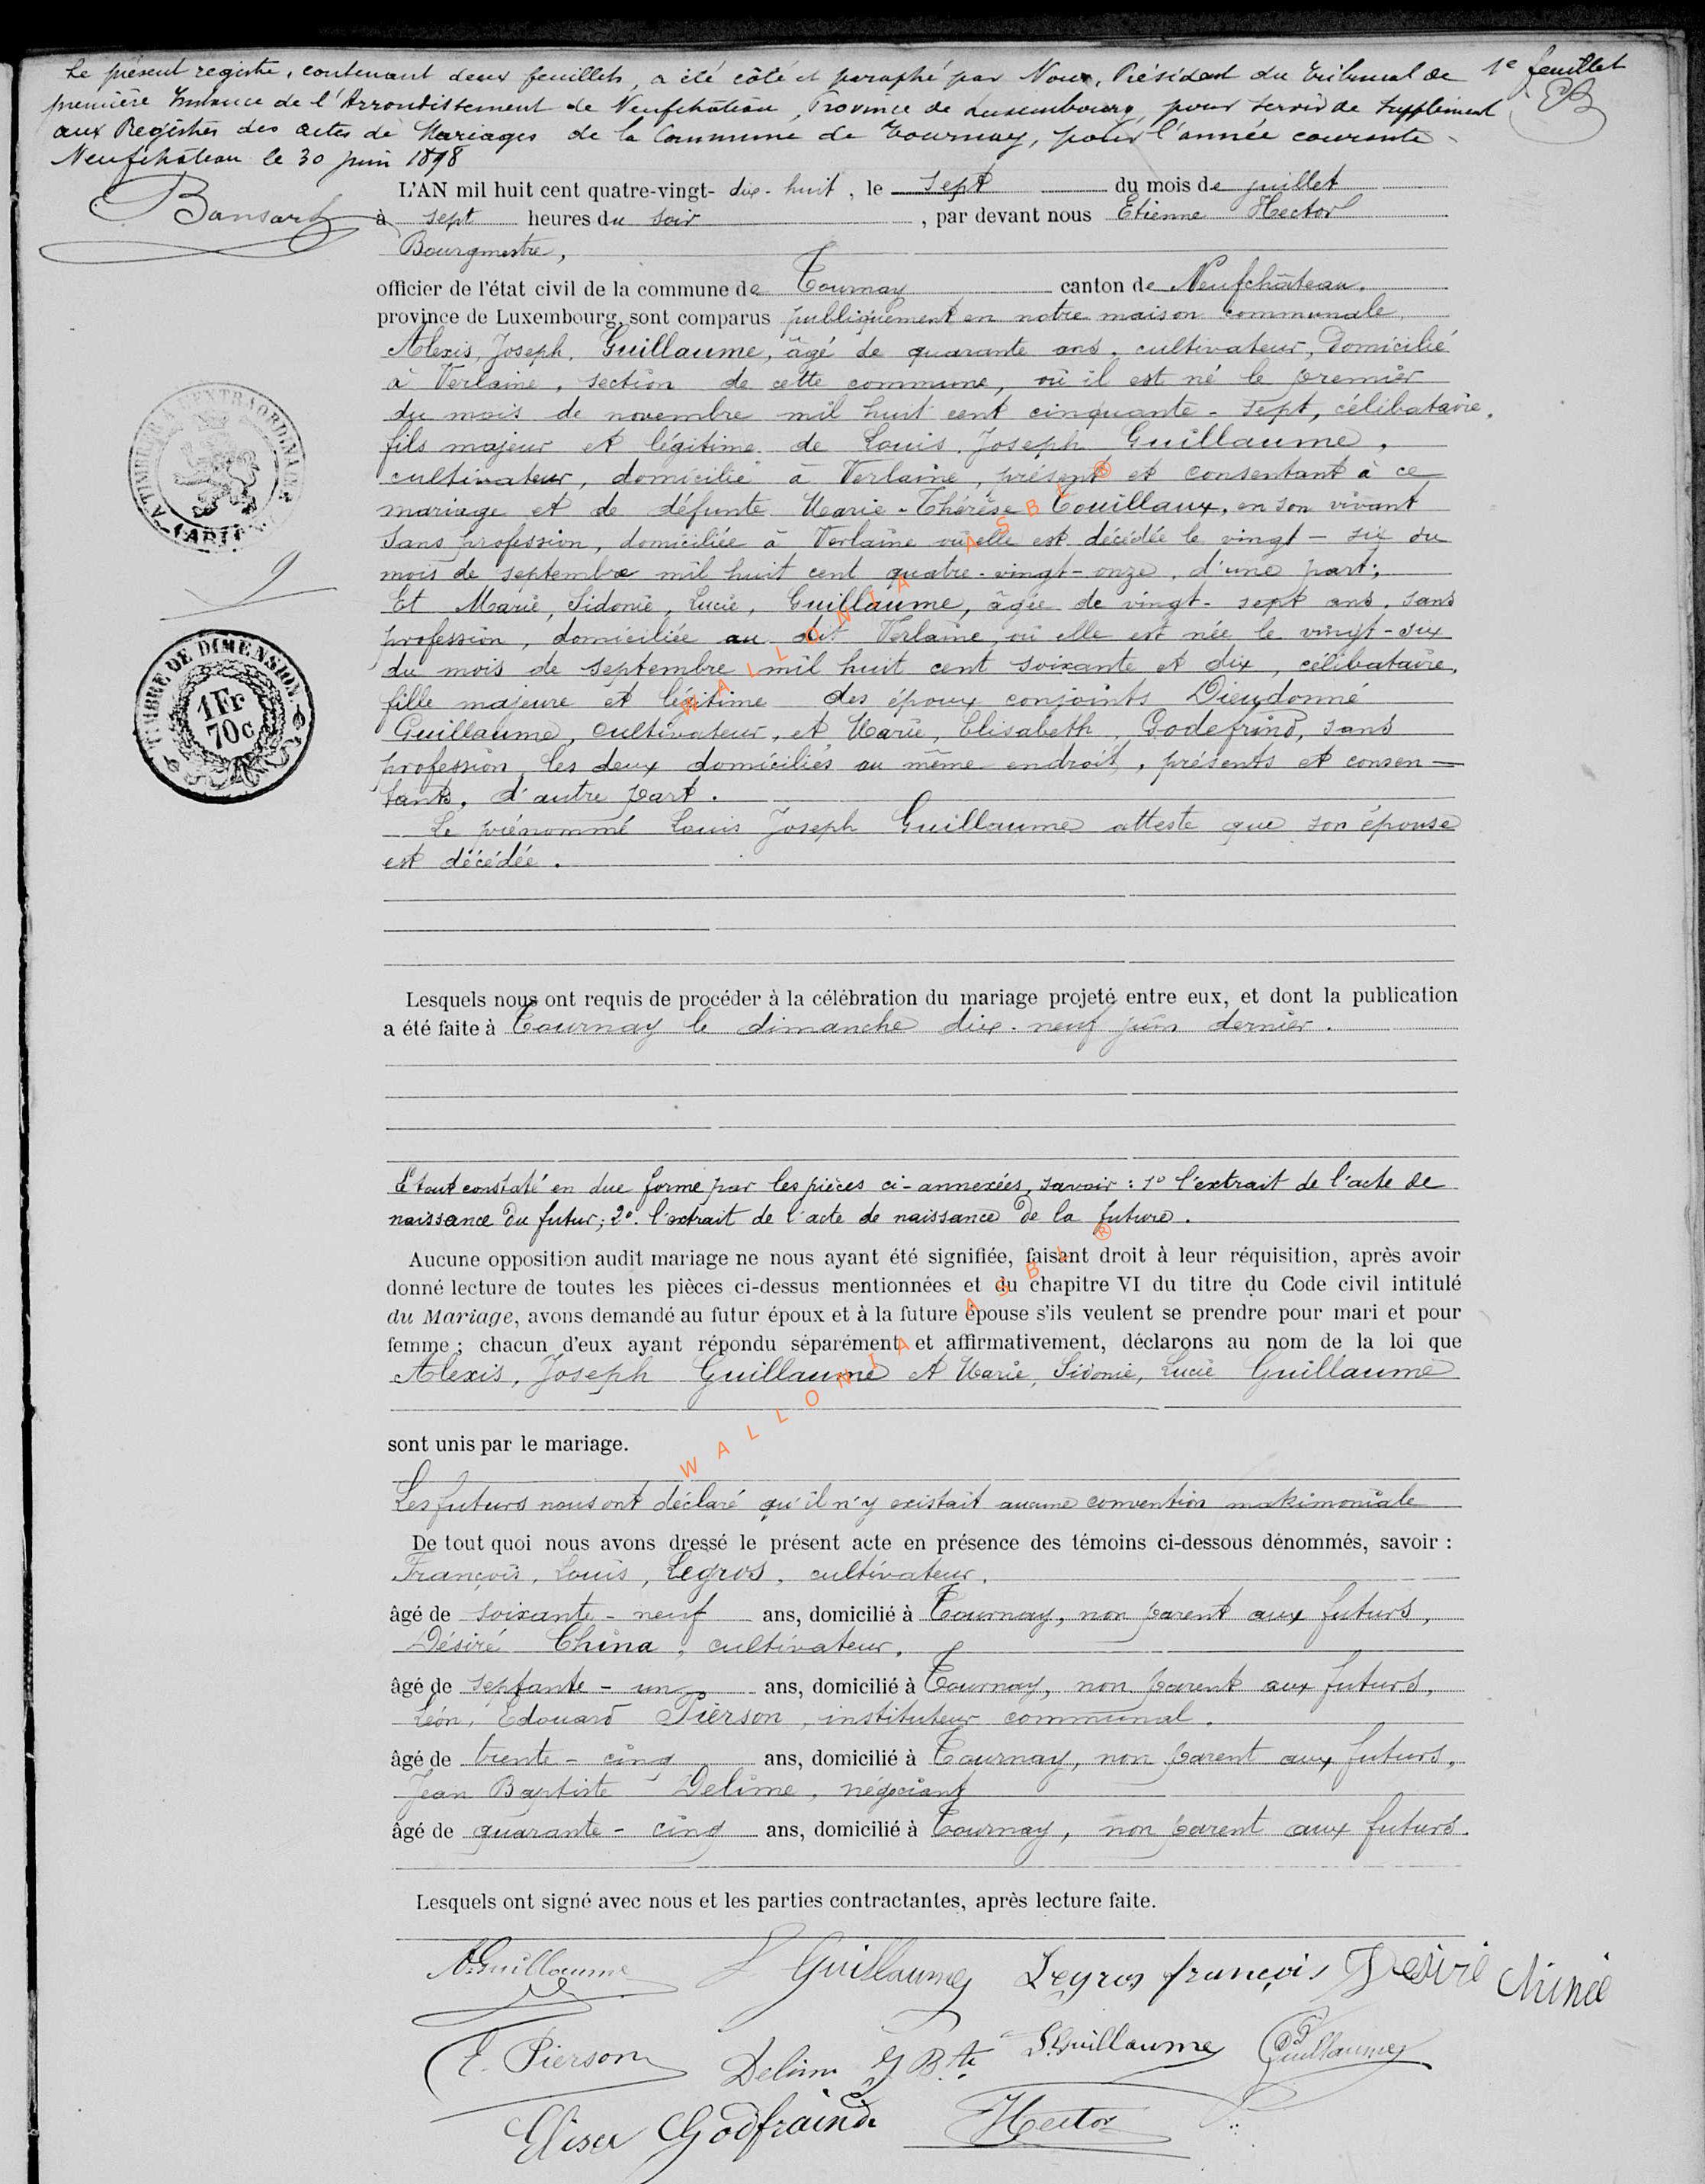 Le présent registre, contenant deux feuillets, a été côté et paraphé par Nous, Président du Tribunal de
1e feuillet
première Instance de l'Arrondissement de Neufchâteau, Province de Luxembourg, pour servir de Supplément
aux Registres des actes de Mariages de la Commune de Tournay, pour l'année courante -
Neufchâteau le 30 juin 1898
Bansart
L'AN mil huit cent quatre-vingt- dix-huit, le sept du mois de juillet
à sept heures du soir, par devant nous Etienne Hector
Bourgmestre,
officier de l'état civil de la commune de Tournay canton de Neufchâteau.
province de Luxembourg, sont comparus publiquement en notre maison communale,
Alexis, Joseph, Guillaume, âgé de quarante ans, cultivateur, domicilié
à Verlaine, section de cette commune, où il est né le premier
du mois de novembre mil huit cent cinquante-sept, célibataire,
fils majeur et légitime de Louis, Joseph Guillaume,
cultivateur, domicilié à Verlaine, présent et consentant à ce
mariage et de défunte Marie-Thérèse Touillaux, en son vivant
sans profession, domiciliée à Verlaine où elle est décédée le vingt-six du
mois de septembre mil huit cent quatre-vingt-onze, d'une part;
Et Marie, Sidonie, Lucie, Guillaume, âgée de vingt-sept ans, sans
profession, domiciliée au dit Verlaine, où elle est née le vingt-six
du mois de septembre mil huit cent soixante et dix, célibataire,
fille majeure et légitime des époux conjoints Dieudonné
Guillaume, cultivateur, et Marie, Elisabeth, Godefrind, sans
profession, les deux domiciliés au même endroit, présents et consen-
tants, d'autre part.
Le prénommé Louis Joseph Guillaume atteste que son épouse
est décédée.
TIMBRE DE DIMENSION
1 Fr
70c
Lesquels nous ont requis de procéder à la célébration du mariage projeté entre eux, et dont la publication
a été faite à Tournay le dimanche dix-neuf juin dernier.
Le tout constaté en due forme par les pièces ci-annexées, savoir: 1° l'extrait de l'acte de
naissance du futur; 2°. l'extrait de l'acte de naissance de la future.
Aucune opposition audit mariage ne nous ayant été signifiée, faisant droit à leur réquisition, après avoir
donné lecture de toutes les pièces ci-dessus mentionnées et du chapitre VI du titre du Code civil intitulé
du Mariage, avons demandé au futur époux et à la future épouse s'ils veulent se prendre pour mari et pour
femme; chacun d'eux ayant répondu séparément et affirmativement, déclarons au nom de la loi que
Alexis, Joseph Guillaume et Marie, Sidonie, Lucie Guillaume
sont unis par le mariage.
Les futurs nous ont déclaré qu'il n'y existait aucune convention matrimoniale
De tout quoi nous avons dressé le présent acte en présence des témoins ci-dessous dénommés, savoir:
François, Louis, Legros, cultivateur,
âgé de soixante-neuf ans, domicilié à Tournay, non parent aux futurs,
Désiré China, cultivateur,
âgé de septante-un ans, domicilié à Tournay, non parent aux futurs,
Léon, Edouard Pierson, instituteur communal,
âgé de trente-cinq ans, domicilié à Tournay, non parent aux futurs,
Jean Baptiste Delime, négociant
âgé de quarante-cinq ans, domicilié à Tournay, non parent aux futurs.
Lesquels ont signé avec nous et les parties contractantes, après lecture faite.
A. Guillaume L Guillaume Legros françois Desiré
E. Pierson Delime J Bte L. Guillaume Guillaume
Elisa Godfrainde Hector
WALLONIA ASBL ®
WALLONIA ASBL ®